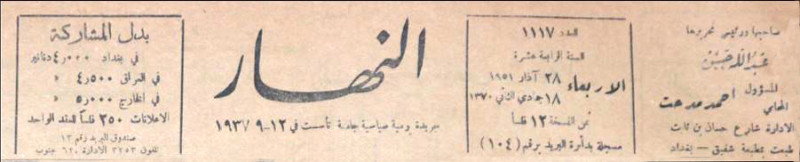 صاحبها ورئيس تحريرها
عبد الله حسن
المسؤول
المحامي
احمد مدحت
الادارة شارع حسان بن ثابت
طبعت بمطبعة شفيق - بغداد
العدد ١١١٧
السنة الرابعة عشرة
الاربعاء
٢٨ آذار ١٩٥١
١٨ جمادي الثاني ١٣٧٠
ثمن النسخة ١٢ فلساً
مسجلة بدائرة البريد برقم (١٠٤)
النهار
جريدة يومية سياسية جامعة تأسست في ١٢-٩-١٩٣٧
بدل المشاركة
في بغداد ٤,٠٠٠ دنانير
في العراق ٤,٥٠٠ »
في الخارج ٥,٠٠٠ »
الاعلانات ٢٥٠ فلساً للعقد الواحد
صندوق البريد رقم ١٣
تلفون ٣٢٥٣ الادارة ٦٢٠ جنوب